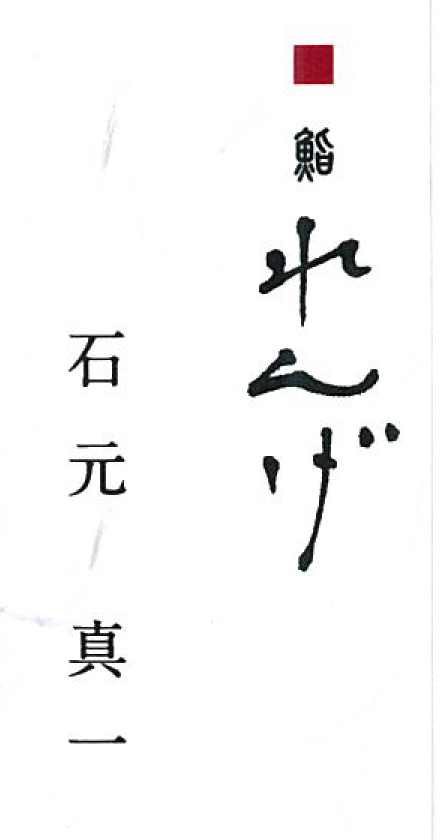 鮨
れんげ
石元 真一